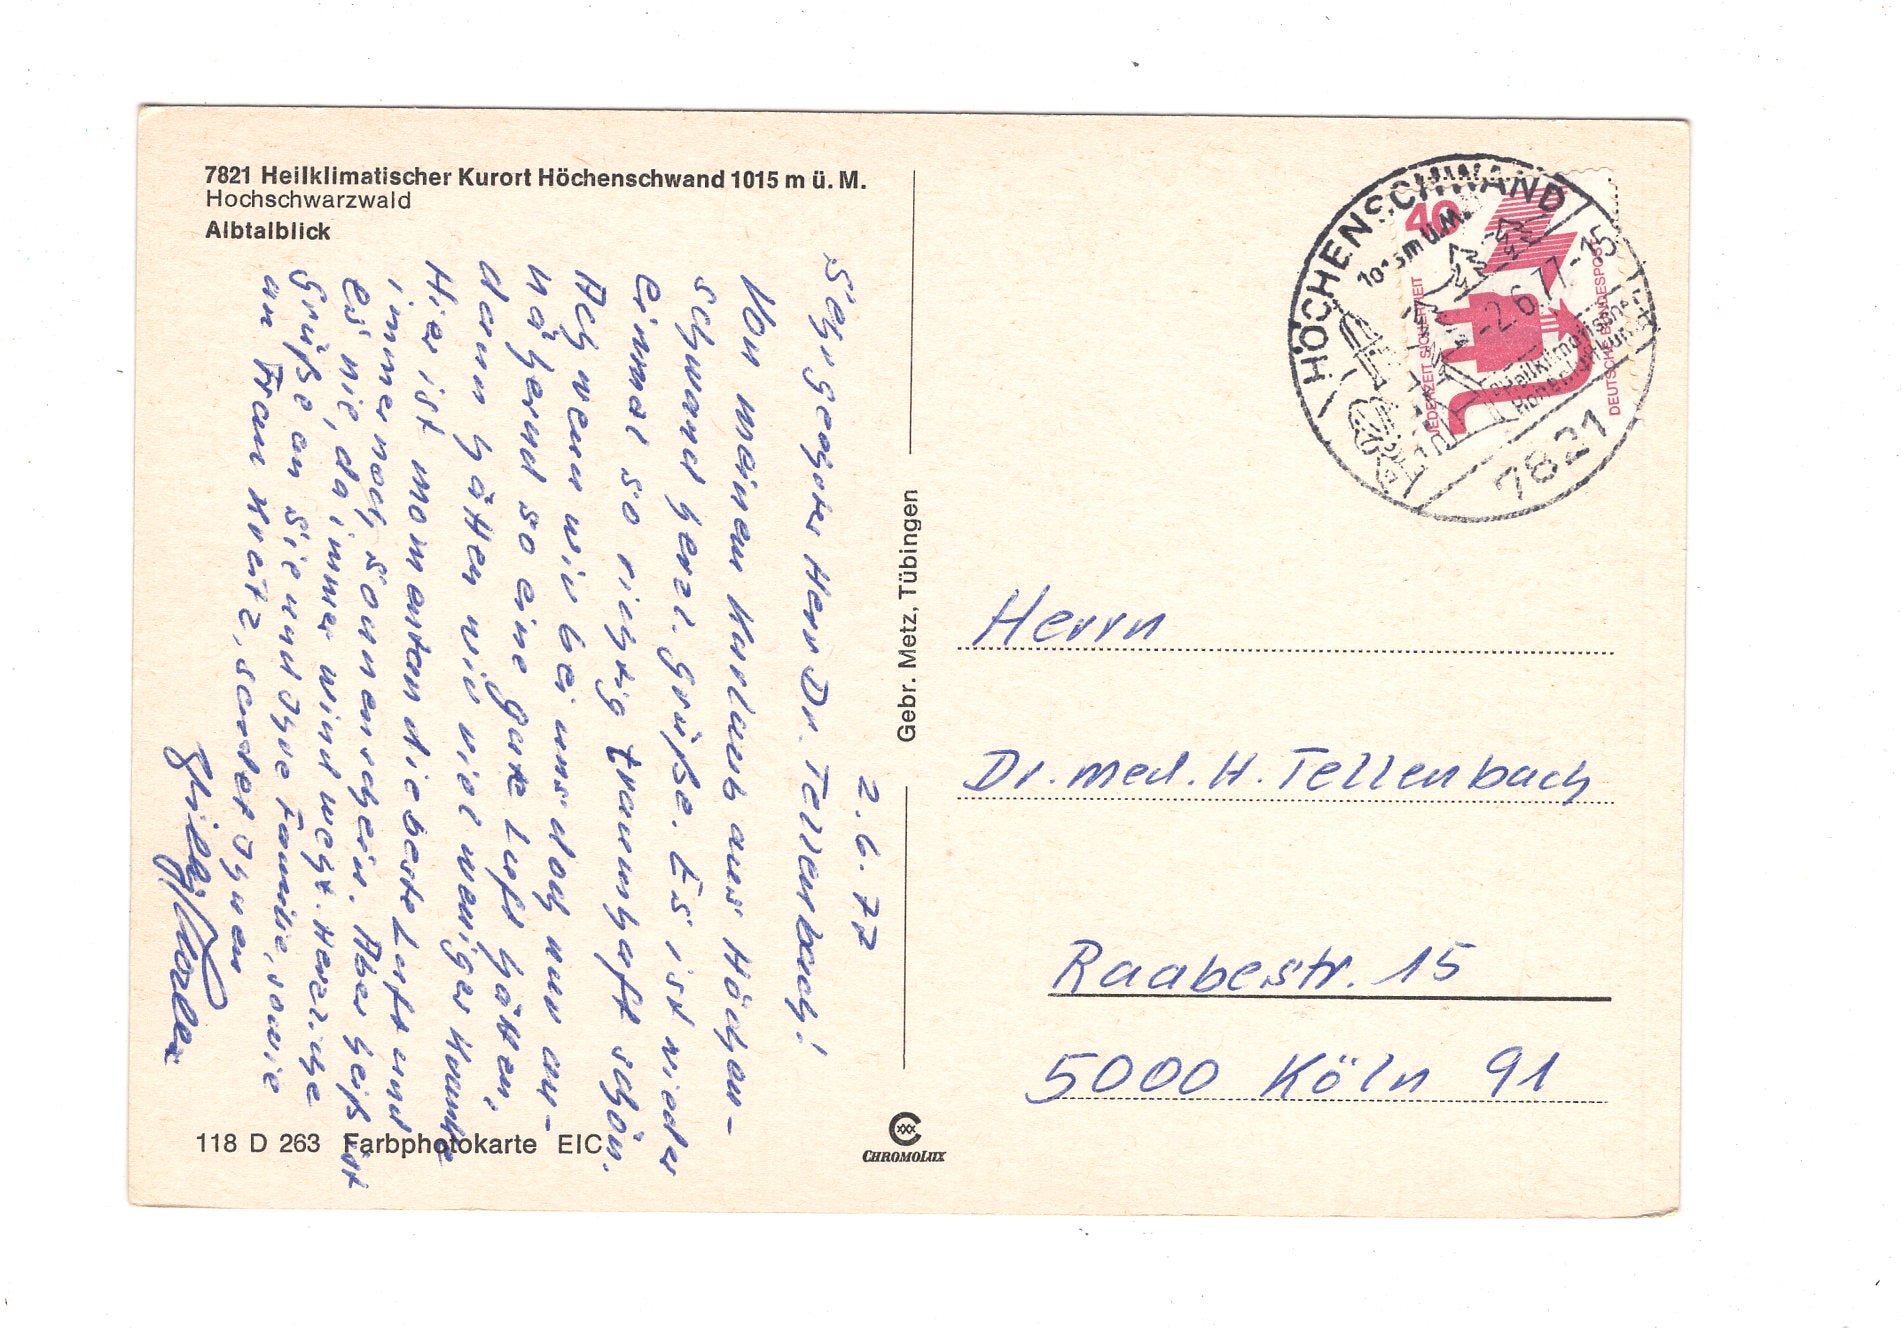 7821 Heilklimatischer Kurort Höchenschwand 1015 m ü. M.
Hochschwarzwald
Albtalblick
2.6.77
Sehr geehrter Herr Dr. Tellenbach!
Von meinem Kurlaub aus Höchen-
schwand herzl. Grüße. Es ist wieder
einmal so richtig traumhaft schön.
Ach wenn wir bei uns doch nur an-
nähernd so eine gute Luft hätten,
dann hätten wir viel weniger Kranke
Hier ist momentan die beste Luft und
immer noch Sonnenschein. Aber heiß ist
es nie, da immer Wind weht. Herzliche
Grüße an Sie und Ihre Familie, sowie
an Frau Kreitz, sendet Ihnen
Gebr. Metz, Tübingen
118 D 263 Farbphotokarte EIC
CHROMOLUX
HÖCHENSCHWAND
1015 m ü.M.
-2.6.77-15
Heilklimatischer
Höhenluftkurort
7821
40
JEDERZEIT SICHERHEIT
DEUTSCHE BUNDESPOST
Herrn
Dr. med. H. Tellenbach
Raabestr. 15
5000 Köln 91